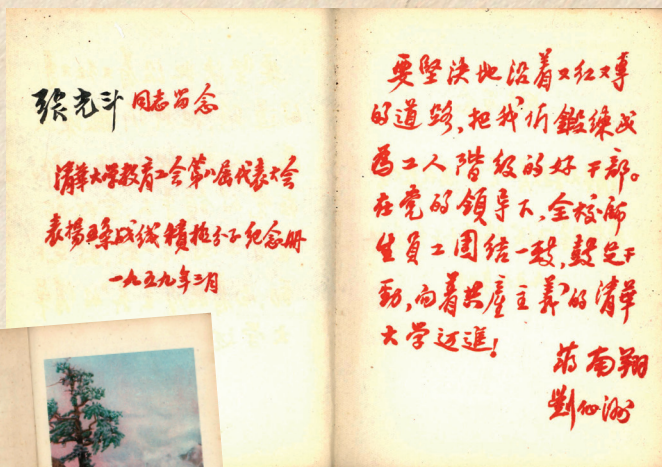 张光斗同志留念
清華大学教育工会第八届代表大会
表揚五条战线積极分子纪念册
一九五九年三月
要堅决地沿着又红又专
的道路,把我们鍛練成
為工人階級的好干部。
在党的領导下,全校师
生員工团结一致,鼓足干
勁,向着共產主義的清華
大学迈進!
蒋南翔
劉仙洲